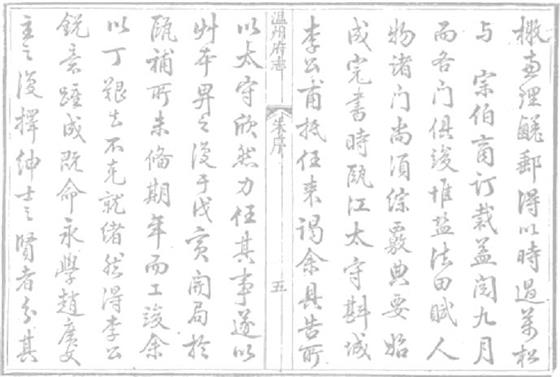 檄查理鹺郵得以時過萬松
與宗伯商訂裁益閱九月
而各門俱竣惟鹽法田賦人
物諸門尚須綜覈典要始
成完書時甌江太守斟城
李公甫抵任來謁余具告所
溫州府志
朱序
五
以太守欣然力任其事遂以
艸本畀之復于戊寅開局於
甌補所未備期年而工竣余
以丁艱去不克就緒然得李公
銳意踵成既命永學趙慶
主之復擇紳士之賢者分其